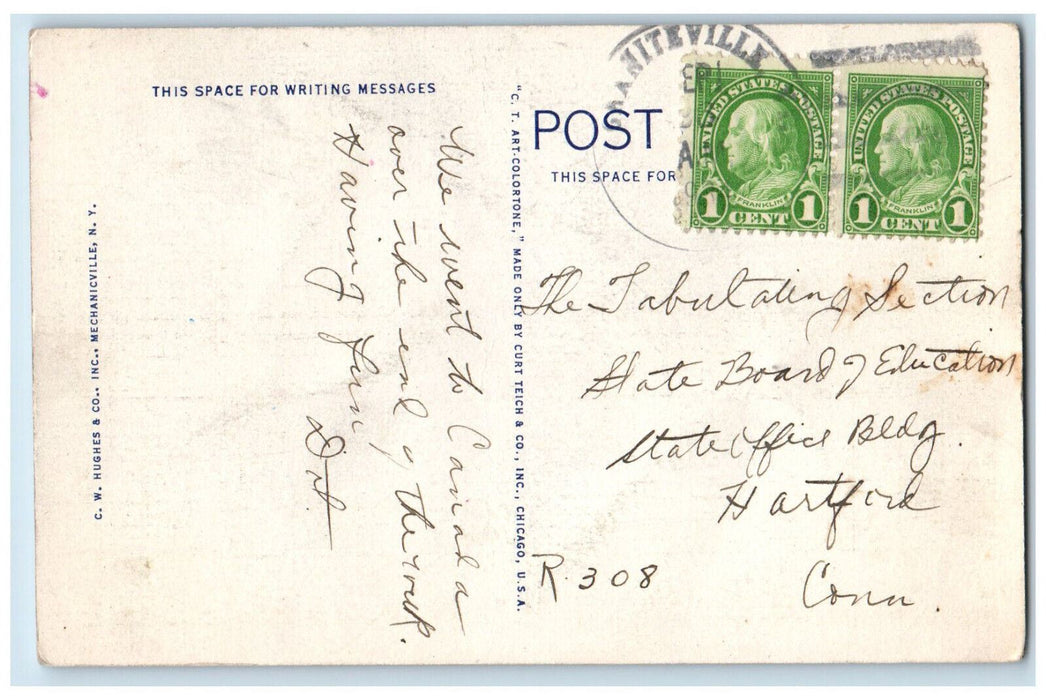 THIS SPACE FOR WRITING MESSAGES
We went to Canada
over the end of the week.
Having fun
Dot
C. W. HUGHES & CO., INC., MECHANICVILLE, N. Y.
"C. T. ART-COLORTONE," MADE ONLY BY CURT TEICH & CO., INC., CHICAGO, U.S.A.
POST
THIS SPACE FOR
ANITEVILLE
UNITED STATES POSTAGE
FRANKLIN
1 CENT 1
UNITED STATES POSTAGE
FRANKLIN
1 CENT 1
The Tabulating Section
State Board of Education
State Office Bldg.
Hartford
Conn.
R. 308